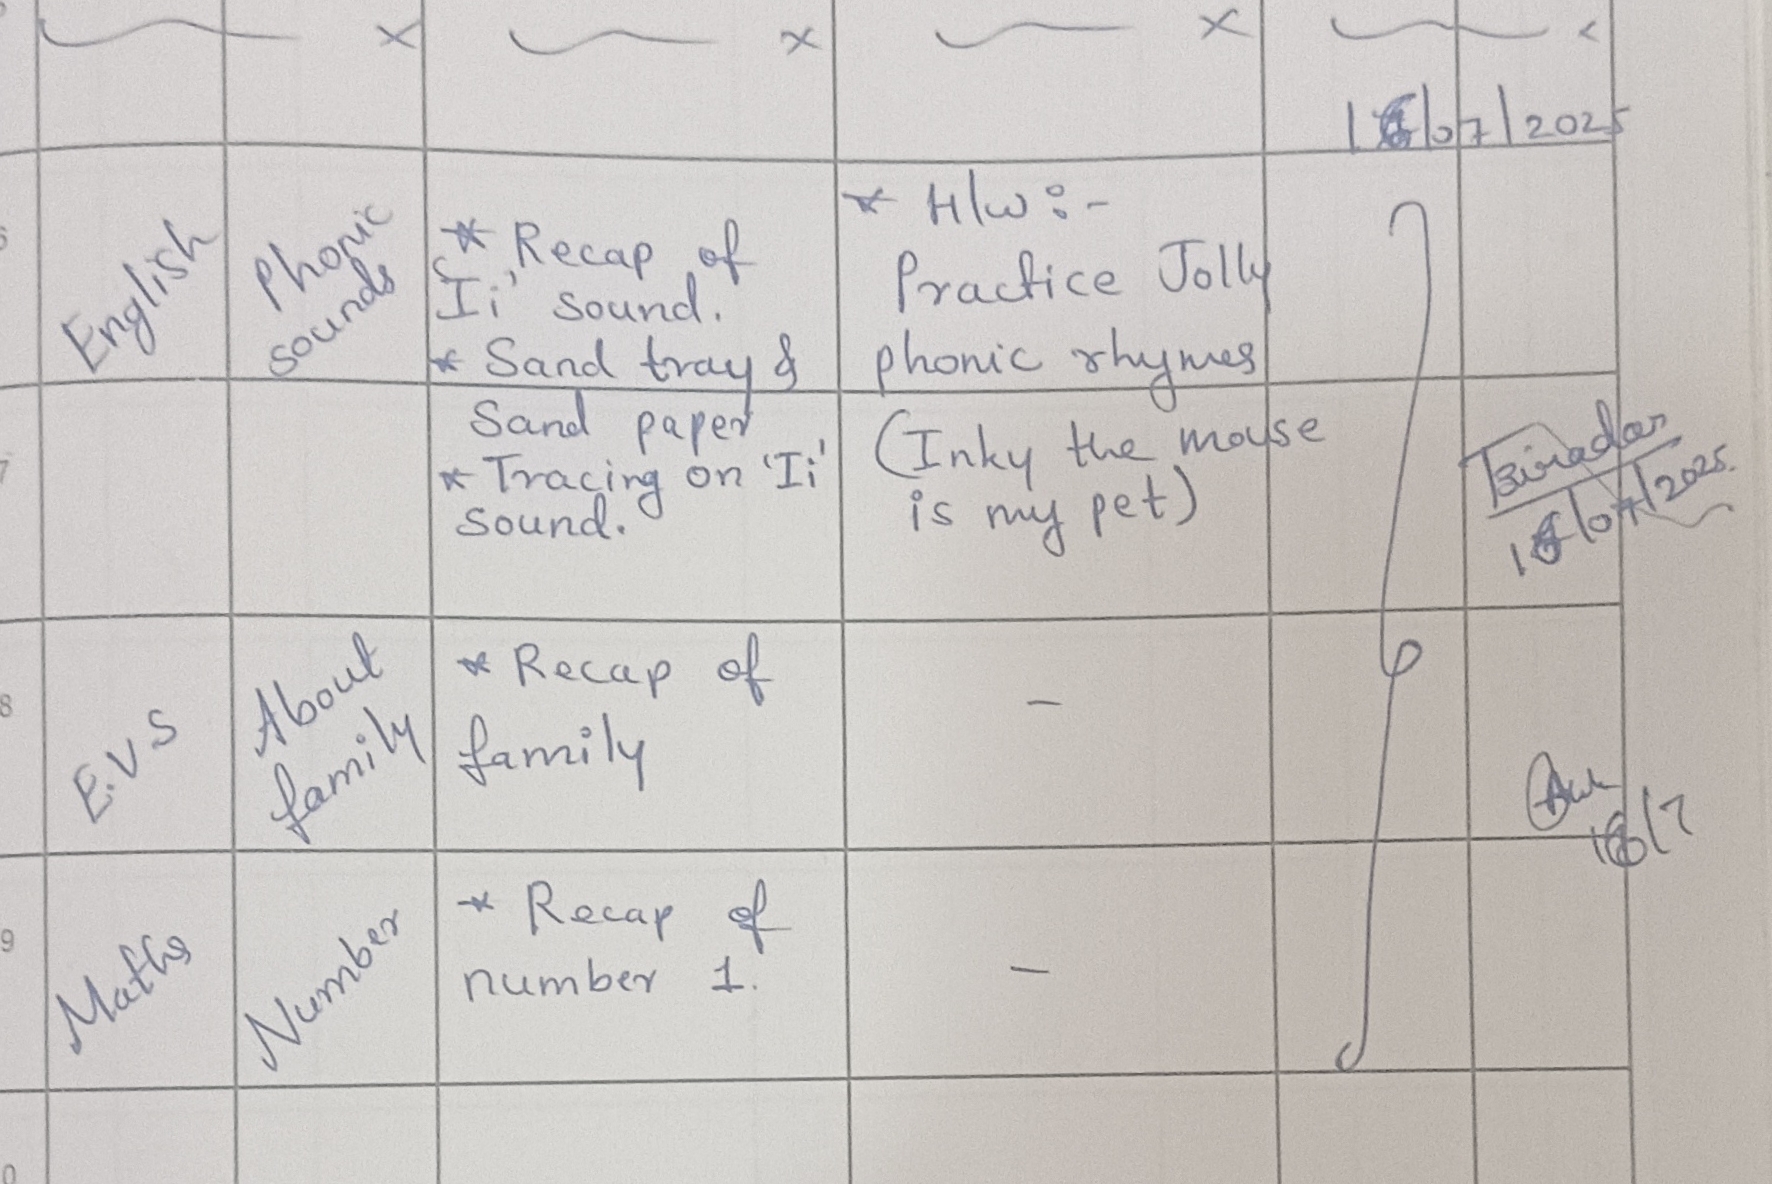 16/07/2025
English
Phonic
sounds
* Recap of
'Ii' sound.
* Sand tray &
Sand paper
* Tracing on 'Ii'
sound.
* H/w :-
Practice Jolly
phonic rhymes
(Inky the mouse
is my pet)
16/07/2025.
8
E.V.S
About
family
* Recap of
family
-
16/7
9
Maths
Number
* Recap of
number 1.
-